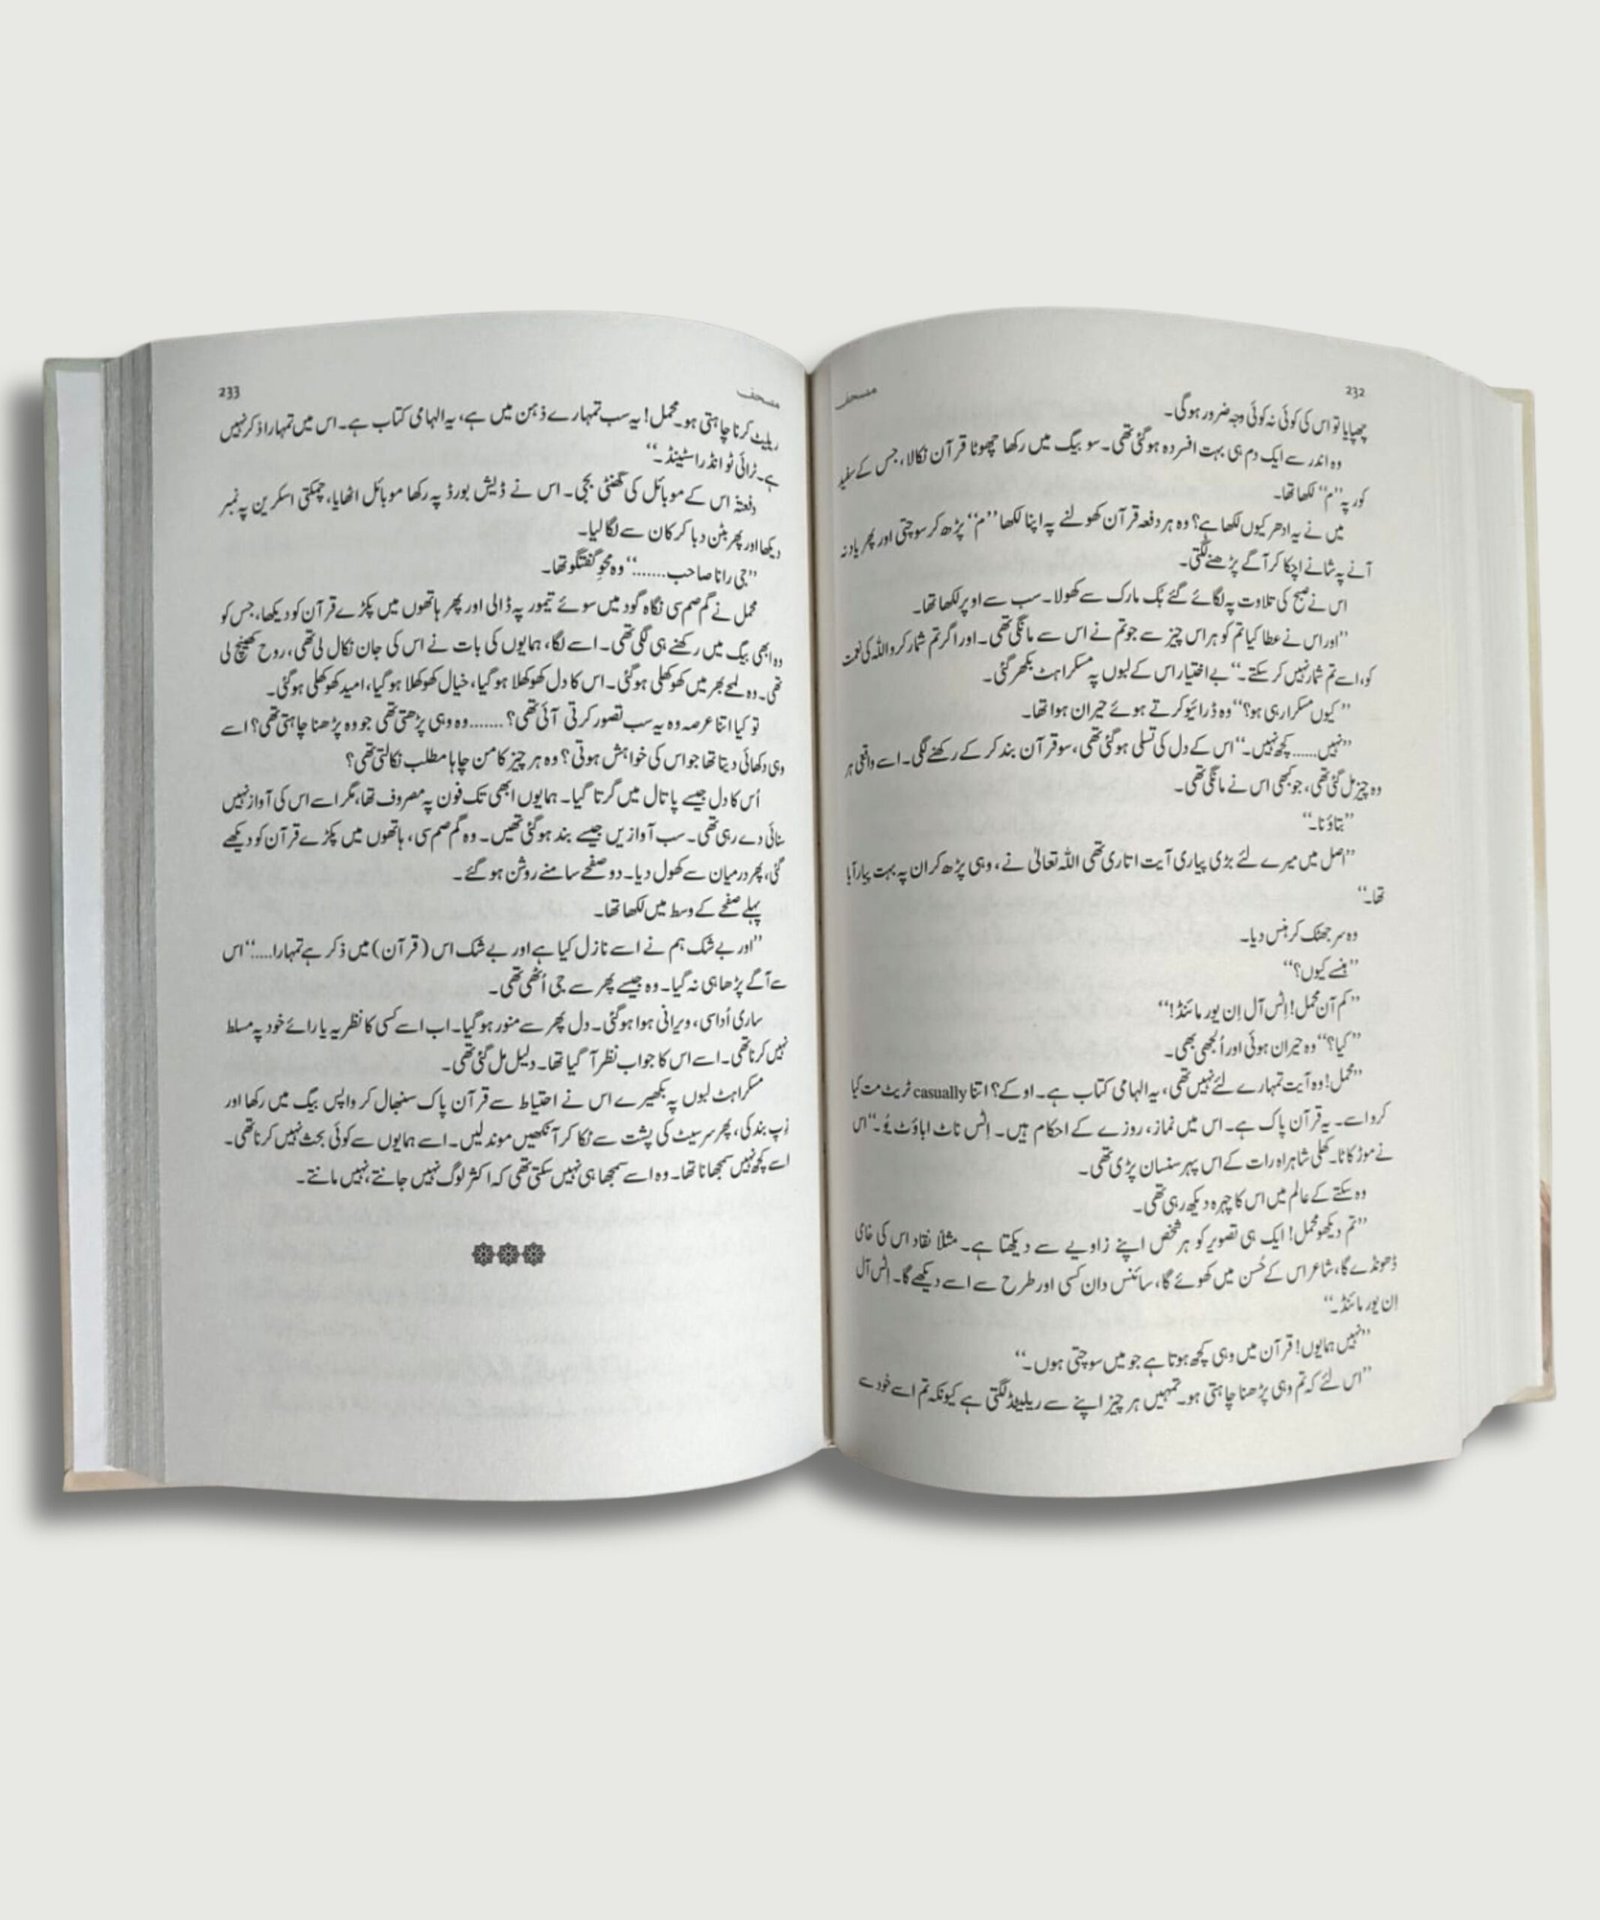 232
مصحف
چھپایا تو اس کی کوئی نہ کوئی وجہ ضرور ہو گی۔
وہ اندر سے ایک دم ہی بہت افسردہ ہو گئی تھی۔ سو بیگ میں رکھا چھوٹا قرآن نکالا، جس کے سفید
کور پہ ”م“ لکھا تھا۔
میں نے یہ ادھر کیوں لکھا ہے؟ وہ ہر دفعہ قرآن کھولنے پہ اپنا لکھا ”م“ پڑھ کر سوچتی اور پھر یاد نہ
آنے پہ شانے اچکا کر آگے پڑھنے لگتی۔
اس نے صبح کی تلاوت پہ لگائے گئے بک مارک سے کھولا۔ سب سے اوپر لکھا تھا۔
”اور اس نے عطا کیا تم کو ہر اس چیز سے جو تم نے اس سے مانگی تھی۔ اور اگر تم شمار کرو اللہ کی نعمت
کو، اسے تم شمار نہیں کر سکتے۔“ بے اختیار اس کے لبوں پہ مسکراہٹ بکھر گئی۔
”کیوں مسکرا رہی ہو؟“ وہ ڈرائیو کرتے ہوئے حیران ہوا تھا۔
”نہیں...... کچھ نہیں۔“ اس کے دل کی تسلی ہو گئی تھی، سو قرآن بند کر کے رکھنے لگی۔ اسے واقعی ہر
وہ چیز مل گئی تھی، جو کبھی اس نے مانگی تھی۔
”بتاؤ نا۔“
”اصل میں میرے لئے بڑی پیاری آیت اتاری تھی اللہ تعالیٰ نے، وہی پڑھ کر ان پہ بہت پیار آیا
تھا۔“
وہ سر جھٹک کر ہنس دیا۔
”ہنسے کیوں؟“
”کم آن محمل! اٹس آل اِن یور مائنڈ!“
”کیا؟“ وہ حیران ہوئی اور اُلجھی بھی۔
”محمل! وہ آیت تمہارے لئے نہیں تھی، یہ الہامی کتاب ہے۔ او کے؟ اتنا casually ٹریٹ مت کیا
کرو اسے۔ یہ قرآن پاک ہے۔ اس میں نماز، روزے کے احکام ہیں۔ اِٹس ناٹ اباؤٹ یُو۔“ اس
نے موڑ کاٹا۔ کھلی شاہراہ رات کے اس پہر سنسان پڑی تھی۔
وہ سکتے کے عالم میں اس کا چہرہ دیکھ رہی تھی۔
”تم دیکھو محمل! ایک ہی تصویر کو ہر شخص اپنے زاویے سے دیکھتا ہے۔ مثلاً نقاد اس کی خامی
ڈھونڈے گا، شاعر اس کے حُسن میں کھوئے گا، سائنس دان کسی اور طرح سے اسے دیکھے گا۔ اِٹس آل
اِن یور مائنڈ۔“
”نہیں ہمایوں! قرآن میں وہی کچھ ہوتا ہے جو میں سوچتی ہوں۔“
”اس لئے کہ تم وہی پڑھنا چاہتی ہو۔ تمہیں ہر چیز اپنے سے ریلیٹڈ لگتی ہے کیونکہ تم اسے خود سے
مصحف
233
ریلیٹ کرنا چاہتی ہو۔ محمل! یہ سب تمہارے ذہن میں ہے، یہ الہامی کتاب ہے۔ اس میں تمہارا ذکر نہیں
ہے۔ ٹرائی ٹو انڈر اسٹینڈ۔“
دفعتہً اس کے موبائل کی گھنٹی بجی۔ اس نے ڈیش بورڈ پہ رکھا موبائل اٹھایا، چمکتی اسکرین پہ نمبر
دیکھا اور پھر بٹن دبا کر کان سے لگا لیا۔
”جی رانا صاحب.......“ وہ محوِ گفتگو تھا۔
محمل نے گم صم سی نگاہ گود میں سوئے تیمور پہ ڈالی اور پھر ہاتھوں میں پکڑے قرآن کو دیکھا، جس کو
وہ ابھی بیگ میں رکھنے ہی لگی تھی۔ اسے لگا، ہمایوں کی بات نے اس کی جان نکال لی تھی، روح کھینچ لی
تھی۔ وہ لمحے بھر میں کھوکھلی ہو گئی۔ اس کا دل کھوکھلا ہو گیا، خیال کھوکھلا ہو گیا، امید کھوکھلی ہو گئی۔
تو کیا اتنا عرصہ وہ یہ سب تصور کرتی آئی تھی؟ ....... وہ وہی پڑھتی تھی جو وہ پڑھنا چاہتی تھی؟ اسے
وہی دکھائی دیتا تھا جو اس کی خواہش ہوتی؟ وہ ہر چیز کا من چاہا مطلب نکالتی تھی؟
اُس کا دل جیسے پاتال میں گرتا گیا۔ ہمایوں ابھی تک فون پہ مصروف تھا، مگر اسے اس کی آواز نہیں
سنائی دے رہی تھی۔ سب آوازیں جیسے بند ہو گئی تھیں۔ وہ گم صم سی، ہاتھوں میں پکڑے قرآن کو دیکھے
گئی، پھر درمیان سے کھول دیا۔ دو صفحے سامنے روشن ہو گئے۔
پہلے صفحے کے وسط میں لکھا تھا۔
”اور بے شک ہم نے اسے نازل کیا ہے اور بے شک اس (قرآن) میں ذکر ہے تمہارا.....“ اس
سے آگے پڑھا ہی نہ گیا۔ وہ جیسے پھر سے جی اُٹھی تھی۔
ساری اُداسی، ویرانی ہوا ہو گئی۔ دل پھر سے منور ہو گیا۔ اب اسے کسی کا نظریہ یا رائے خود پہ مسلط
نہیں کرنا تھی۔ اسے اس کا جواب نظر آ گیا تھا۔ دلیل مل گئی تھی۔
مسکراہٹ لبوں پہ بکھیرے اس نے احتیاط سے قرآن پاک سنبھال کر واپس بیگ میں رکھا اور
زِپ بند کی، پھر سر سیٹ کی پشت سے ٹکا کر آنکھیں موند لیں۔ اسے ہمایوں سے کوئی بحث نہیں کرنا تھی۔
اسے کچھ نہیں سمجھانا تھا۔ وہ اسے سمجھا ہی نہیں سکتی تھی کہ اکثر لوگ نہیں جانتے، نہیں مانتے۔